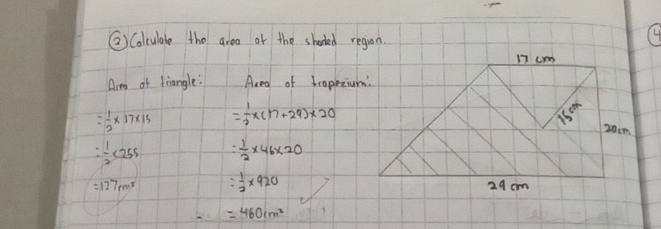 ② Calculate the area of the shaded region.
Area of triangle:
= 1/2 × 17 × 15
= 1/2 × 255
= 127cm²
Area of trapezium:
= 1/2 × (17 + 29) × 20
= 1/2 × 46 × 20
= 1/2 × 920
= 460cm²
17 cm
15cm
20cm
29 cm